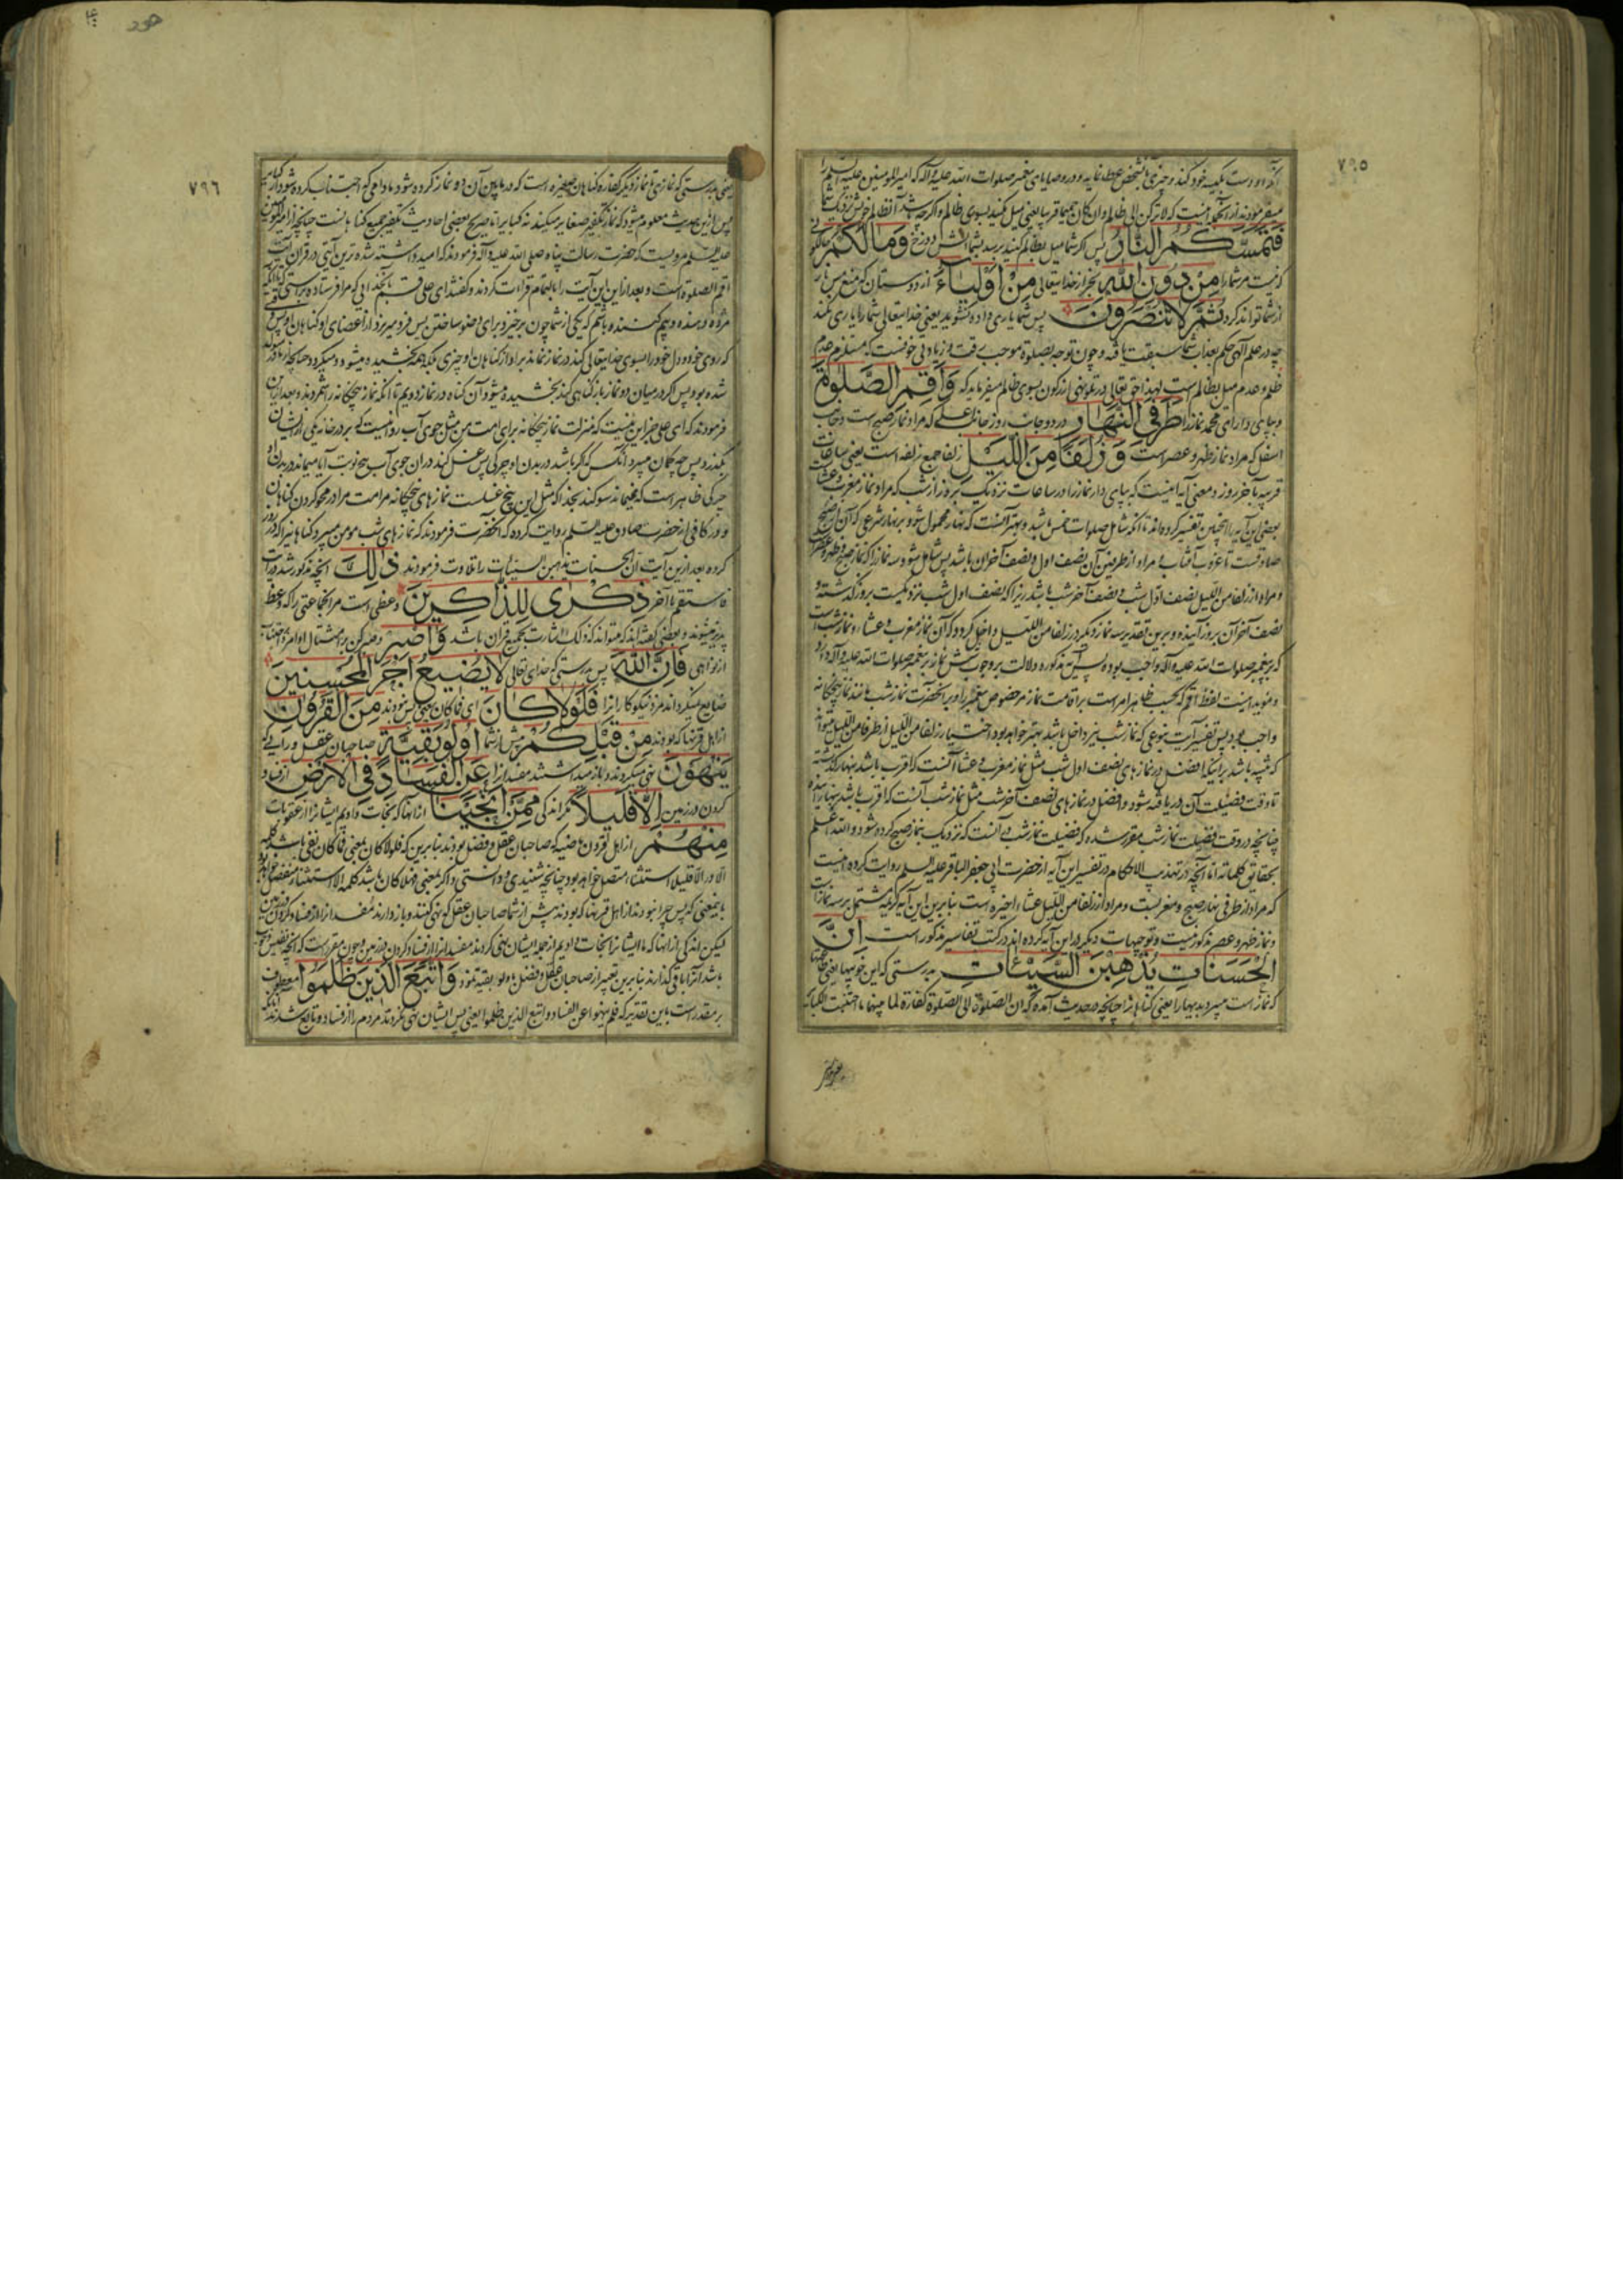 ٧٩٥
که او دست بکیسه خود کند و چیزی بآن شخص عطا نماید و در وصایای پیغمبر صلوات الله علیه و آله که امیر المؤمنین علیه السلم را
میفرمودند از آنجمله اینست که لا ترکن الی ظالم و ان کان حمیما قریبا یعنی میل مکنید بسوی ظالم و اگر چه باشد آن ظالم خویش نزدیک شما
فَتَمَسَّكُمُ النَّارُ پس اگر شما میل بظالم کنید برسد بشما آتش دوزخ وَمَا لَكُمْ
که نیست مر شما را مِنْ دُونِ اللَّهِ بجز از خدایتعالی مِنْ أَوْلِيَاءَ از دوستان که منع
از شما تواند کرد ثُمَّ لَا تُنْصَرُونَ پس شما یاری داده نشوید یعنی خدایتعالی شما را یاری نکند
چه در علم الهی حکم بعذاب شما سبقت یافته و چون توجه بصلوة موجب رقت و زیادتی خوفست که مستلزم عدم
ظلم و عدم میل بظالم است لهذا حق تعالی در تلو نهی از رکون بسوی ظالم میفرماید که وَأَقِمِ الصَّلَوةَ
و بپای دار ای محمد نماز را طَرَفَيِ النَّهَارِ در دو جانب روز جانب اعلی که مراد نماز صبح است و جانب
اسفل که مراد نماز ظهر و عصر است وَزُلَفًا مِنَ اللَّيْلِ زلفا جمع زلفه است یعنی ساعات
قریبه بآخر روز و معنی آیه اینست که بپای دار نماز را در ساعات نزدیک بروز از شب که مراد نماز مغرب و عشا
بعضی این آیه را اینچنین تفسیر کرده‌اند تا آنکه شامل صلوات خمس باشد و بهتر آنست که نهار محمول شود بر نهار شرعی که آن از صبح
صادقست تا غروب آفتاب و مراد از طرفین آن نصف اول و نصف آخر آن باشد پس شامل شود سه نماز را که نماز صبح و ظهر و عصر
و مراد از زلفا من اللیل نصف اول شب و نصف آخر شب باشد زیرا که نصف اول شب نزدیکست بروز گذشته و
نصف آخر آن بروز آینده و برین تقدیر سه نماز دیگر در زلفا من اللیل داخل گردد که آن نماز مغرب و عشا و نماز شب است
که بر پیغمبر صلوات الله علیه و آله واجب بوده پس آیه مذکوره دلالت بر وجوب شش نماز بر پیغمبر صلوات الله علیه و آله دارد
و مؤید اینست لفظ اقم که بحسب ظاهر امر است بر اقامت نماز مر خصوص پیغمبر را و بر آنحضرت نماز شب مانند نماز پنجگانه
واجب بود پس تفسیر آیت بنوعی که نماز شب نیز داخل باشد بهتر خواهد بود و اختیار زلفا من اللیل از طرفا من اللیل میتواند
که شبیه باشد بر اینکه افضل در نمازهای نصف اول شب مثل نماز مغرب و عشا آنست که اقرب باشد بنهار گذشته
تا وقت فضیلت آن دریافته شود و افضل در نمازهای نصف آخر شب مثل نماز شب آنست که اقرب باشد بنهار آینده
چنانچه در وقت فضیلت نماز شب مقرر شده که فضیلت نماز شب در آنست که نزدیک بنماز صبح کرده شود و الله اعلم
بحقائق کلماته اما آنچه در تهذیب الاحکام در تفسیر این آیه از حضرت ابی جعفر الباقر علیه السلم روایت کرده اینست
که مراد از طرفی نهار صبح و مغربست و مراد از زلفا من اللیل عشاء اخیره است بنابرین این آیه کریمه مشتمل بر سه نماز است
و نماز ظهر و عصر مذکور نیست و توجیهات دیگر در این آیه کرده‌اند در کتب تفاسیر مذکور است إِنَّ
الْحَسَنَاتِ يُذْهِبْنَ السَّيِّئَاتِ بدرستی که این خوبیها یعنی
که نماز است میبرد بدیها را یعنی گناهان را چنانچه در حدیث آمده که ان الصلوة الی الصلوة کفارة لما بینهما ما اجتنبت الکبائر
هود
٧٩٦
یعنی بدرستی که نمازی تا نماز دیگر کفاره گناهان صغیره است که در ما بین آن دو نماز کرده شود مادامی که اجتناب کرده شود از کبایر
پس ازین حدیث معلوم میشود که نماز تکفیر صغایر میکند نه کبایر اما صریح بعضی احادیث تکفیر جمیع گناهانست چنانچه از امیر المؤمنین
علیه السلم مرویست که حضرت رسالت پناه صلی الله علیه و آله فرمودند که امید داشته شده‌ترین آیتی در قرآن آیت
اقم الصلوة است و بعد ازین این آیت را بالتمام قراءت کردند و گفتند ای علی قسم بآنخدایی که مرا فرستاده براستی
مژده دهنده و بیم کننده باشم که یکی از شما چون برخیزد برای وضو ساختن پس فرو میریزد از اعضای او گناهان او پس
که روی خود و دل خود را بسوی خدایتعالی کند در نماز نماند بر او از گناهان او چیزی بلکه همه بخشیده میشود و میگردد همچنانکه از مادر متولد
شده بود پس اگر در میان دو نماز باز گناهی کند بخشیده میشود آن گناه در نماز دویم تا آنکه نماز پنجگانه را شمردند و بعد ازین
فرمودند که ای علی جز این نیست که منزلت نماز پنجگانه برای امت من مثل جوی آب روانیست که بر در خانه یکی از ایشان
بگذرد پس چه گمان میبرد آنکس که اگر باشد در بدن او چرکی پس غسل کند در آن جوی آب پنج نوبت آیا میماند در بدن او
چرکی ظاهر است که نمیماند سوگند بخدا که مثل این پنج غسلست نمازهای پنجگانه مر امت مرا در محو کردن گناهان
و در کافی از حضرت صادق علیه السلم روایت کرده که آنحضرت فرمودند که نمازهای شب مؤمن میبرد گناهانیرا که در روز
کرده بعد ازین آیت ان الحسنات یذهبن السیئات را تلاوت فرمودند ذَلِكَ آنچه مذکور شد از
فاستقم تا آخر ذِكْرَى لِلذَّاكِرِينَ وعظی است مر آنجماعتی را که وعظ
پذیر میشوند و بعضی گفته‌اند که میتواند که ذلک اشارت بجمیع قرآن باشد وَاصْبِرْ و صبر کن بر امتثال اوامر و اجتناب
از نواهی فَإِنَّ اللَّهَ پس بدرستی که خدای تعالی لَا يُضِيعُ أَجْرَ الْمُحْسِنِينَ
ضایع نمیگرداند مزد نیکوکارانرا فَلَوْلَا كَانَ ای فما کان یعنی پس نبودند مِنَ الْقُرُونِ
از اهل قرنها که بودند مِنْ قَبْلِكُمْ پیش از شما أُولُوا بَقِيَّةٍ صاحبان عقل و رایی که
يَنْهَوْنَ نهی میکردند و باز میداشتند مفسدانرا عَنِ الْفَسَادِ فِي الْأَرْضِ از فساد
کردن در زمین إِلَّا قَلِيلًا مگر اندکی مِمَّنْ أَنْجَيْنَا از آنها که نجات دادیم ایشانرا از عقوبات
مِنْهُمْ از اهل قرون ماضیه که صاحبان عقل و فضل بودند بنابرین که فلولا کان بمعنی فما کان نفی باشد کلمه
الا در الا قلیلا استثناء متصل خواهد بود چنانچه شنیدی و دانستی و اگر بمعنی فهلا کان باشد کلمه الا استثناء منفصل خواهد بود
باینمعنی که پس چرا نبودند از اهل قرنها که بودند پیش از شما صاحبان عقل که نهی کنند و باز دارند مفسدانرا از فساد کردن در زمین
لیکن اندکی از آنها که ما ایشانرا نجات دادیم از جمله ایشان نهی کردند مفسدانرا از فساد کردن در زمین و چون مقرر است که آنچه نفیس و خوب
باشد آنرا باقی گذارند بنابرین تعبیر از صاحبان عقل و فضل باولو بقیه نمود وَاتَّبَعَ الَّذِينَ ظَلَمُوا معطوف
بر مقدر است باین تقدیر که فلم ینهوا عن الفساد و اتبع الذین ظلموا یعنی پس ایشان نهی نکردند مردم را از فساد و تابع شدند